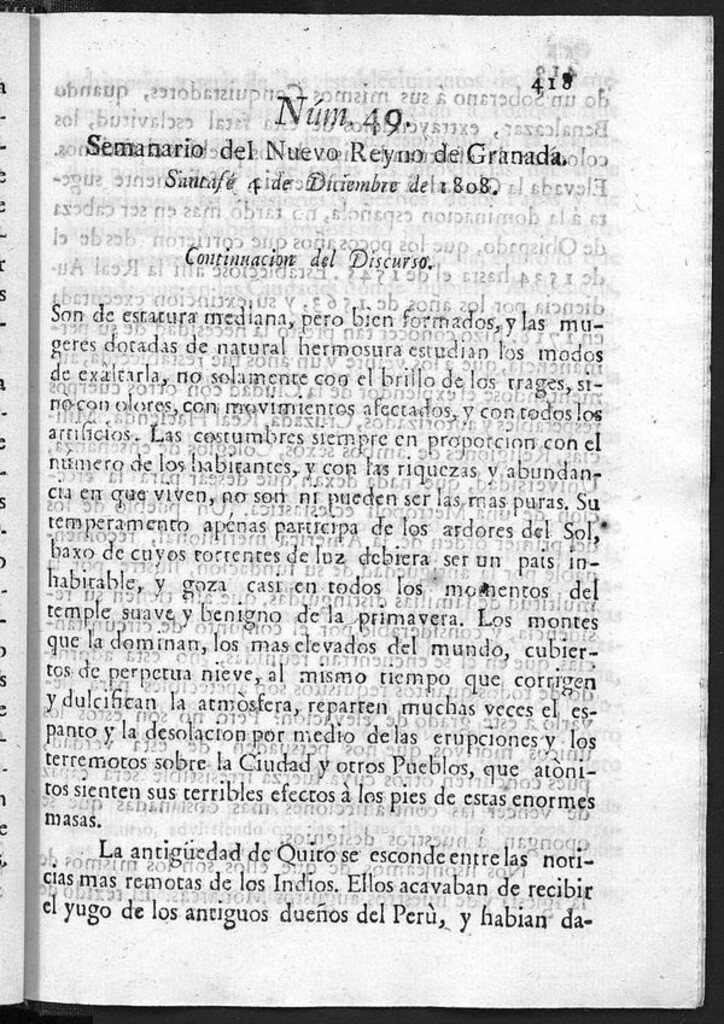 418
Núm. 49.
Semanario del Nuevo Reyno de Granada.
Santafé 4 de Diciembre de 1808.
Continuacion del Discurso.
Son de estatura mediana, pero bien formados, y las mu-
geres dotadas de natural hermosura estudian los modos
de exâltarla, no solamente con el brillo de los trages, si-
nò con olores, con movimientos afectados, y con todos los
artificios. Las costumbres siempre en proporcion con el
número de los habitantes, y con las riquezas y abundan-
cia en que viven, no son ni pueden ser las mas puras. Su
temperamento apénas participa de los ardores del Sol,
baxo de cuyos torrentes de luz debiera ser un pais in-
habitable, y goza casi en todos los momentos del
temple suave y benigno de la primavera. Los montes
que la dominan, los mas elevados del mundo, cubier-
tos de perpetua nieve, al mismo tiempo que corrigen
y dulcifican la atmòsfera, reparten muchas veces el es-
panto y la desolacion por medio de las erupciones y los
terremotos sobre la Ciudad y otros Pueblos, que atòni-
tos sienten sus terribles efectos à los pies de estas enormes
masas.
La antigüedad de Quito se esconde entre las noti-
cias mas remotas de los Indios. Ellos acavaban de recibir
el yugo de los antiguos dueños del Perù, y habian da-